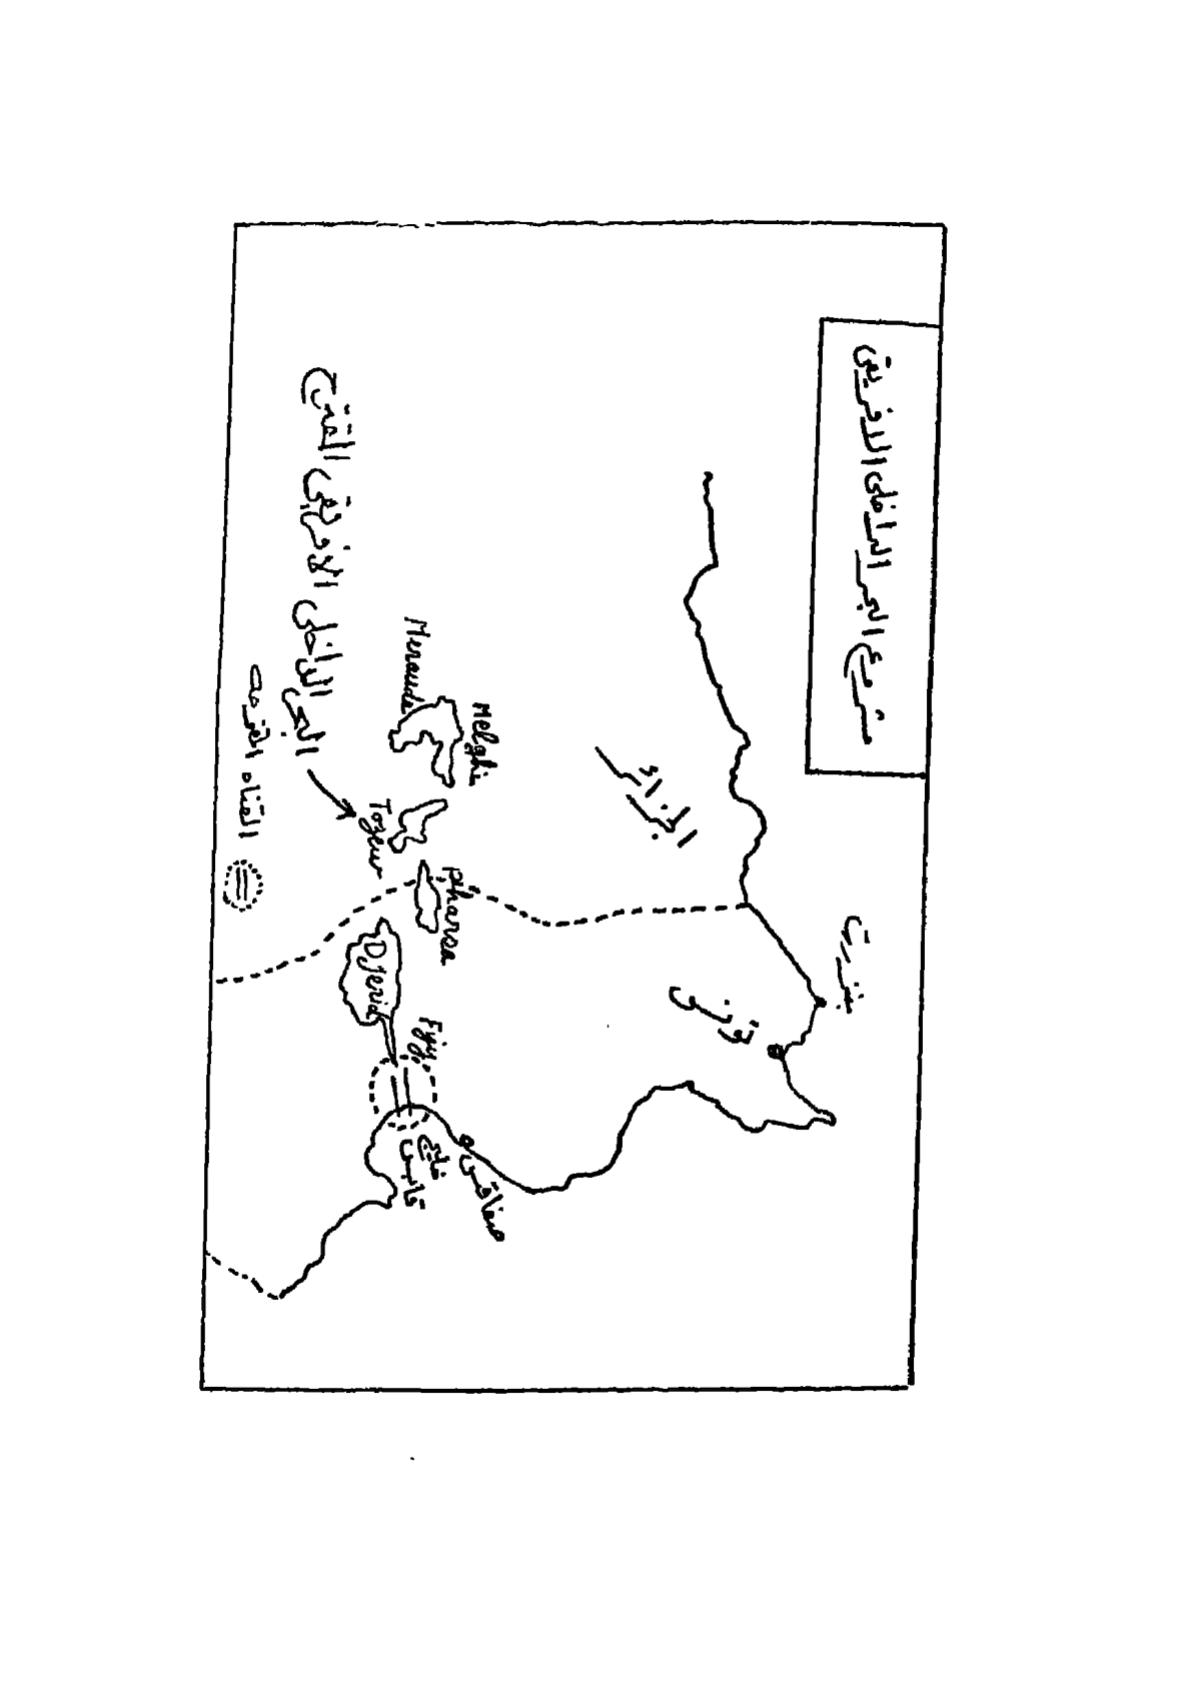 مشروع البحر الداخلى الافريقى
بنزرت
تونس
الجزائر
صفاقس
خليج
قابس
Melghi
Pharsa
Djerid
Tozeur
البحر الداخلى الافريقى المقترح
القناه المقترحه